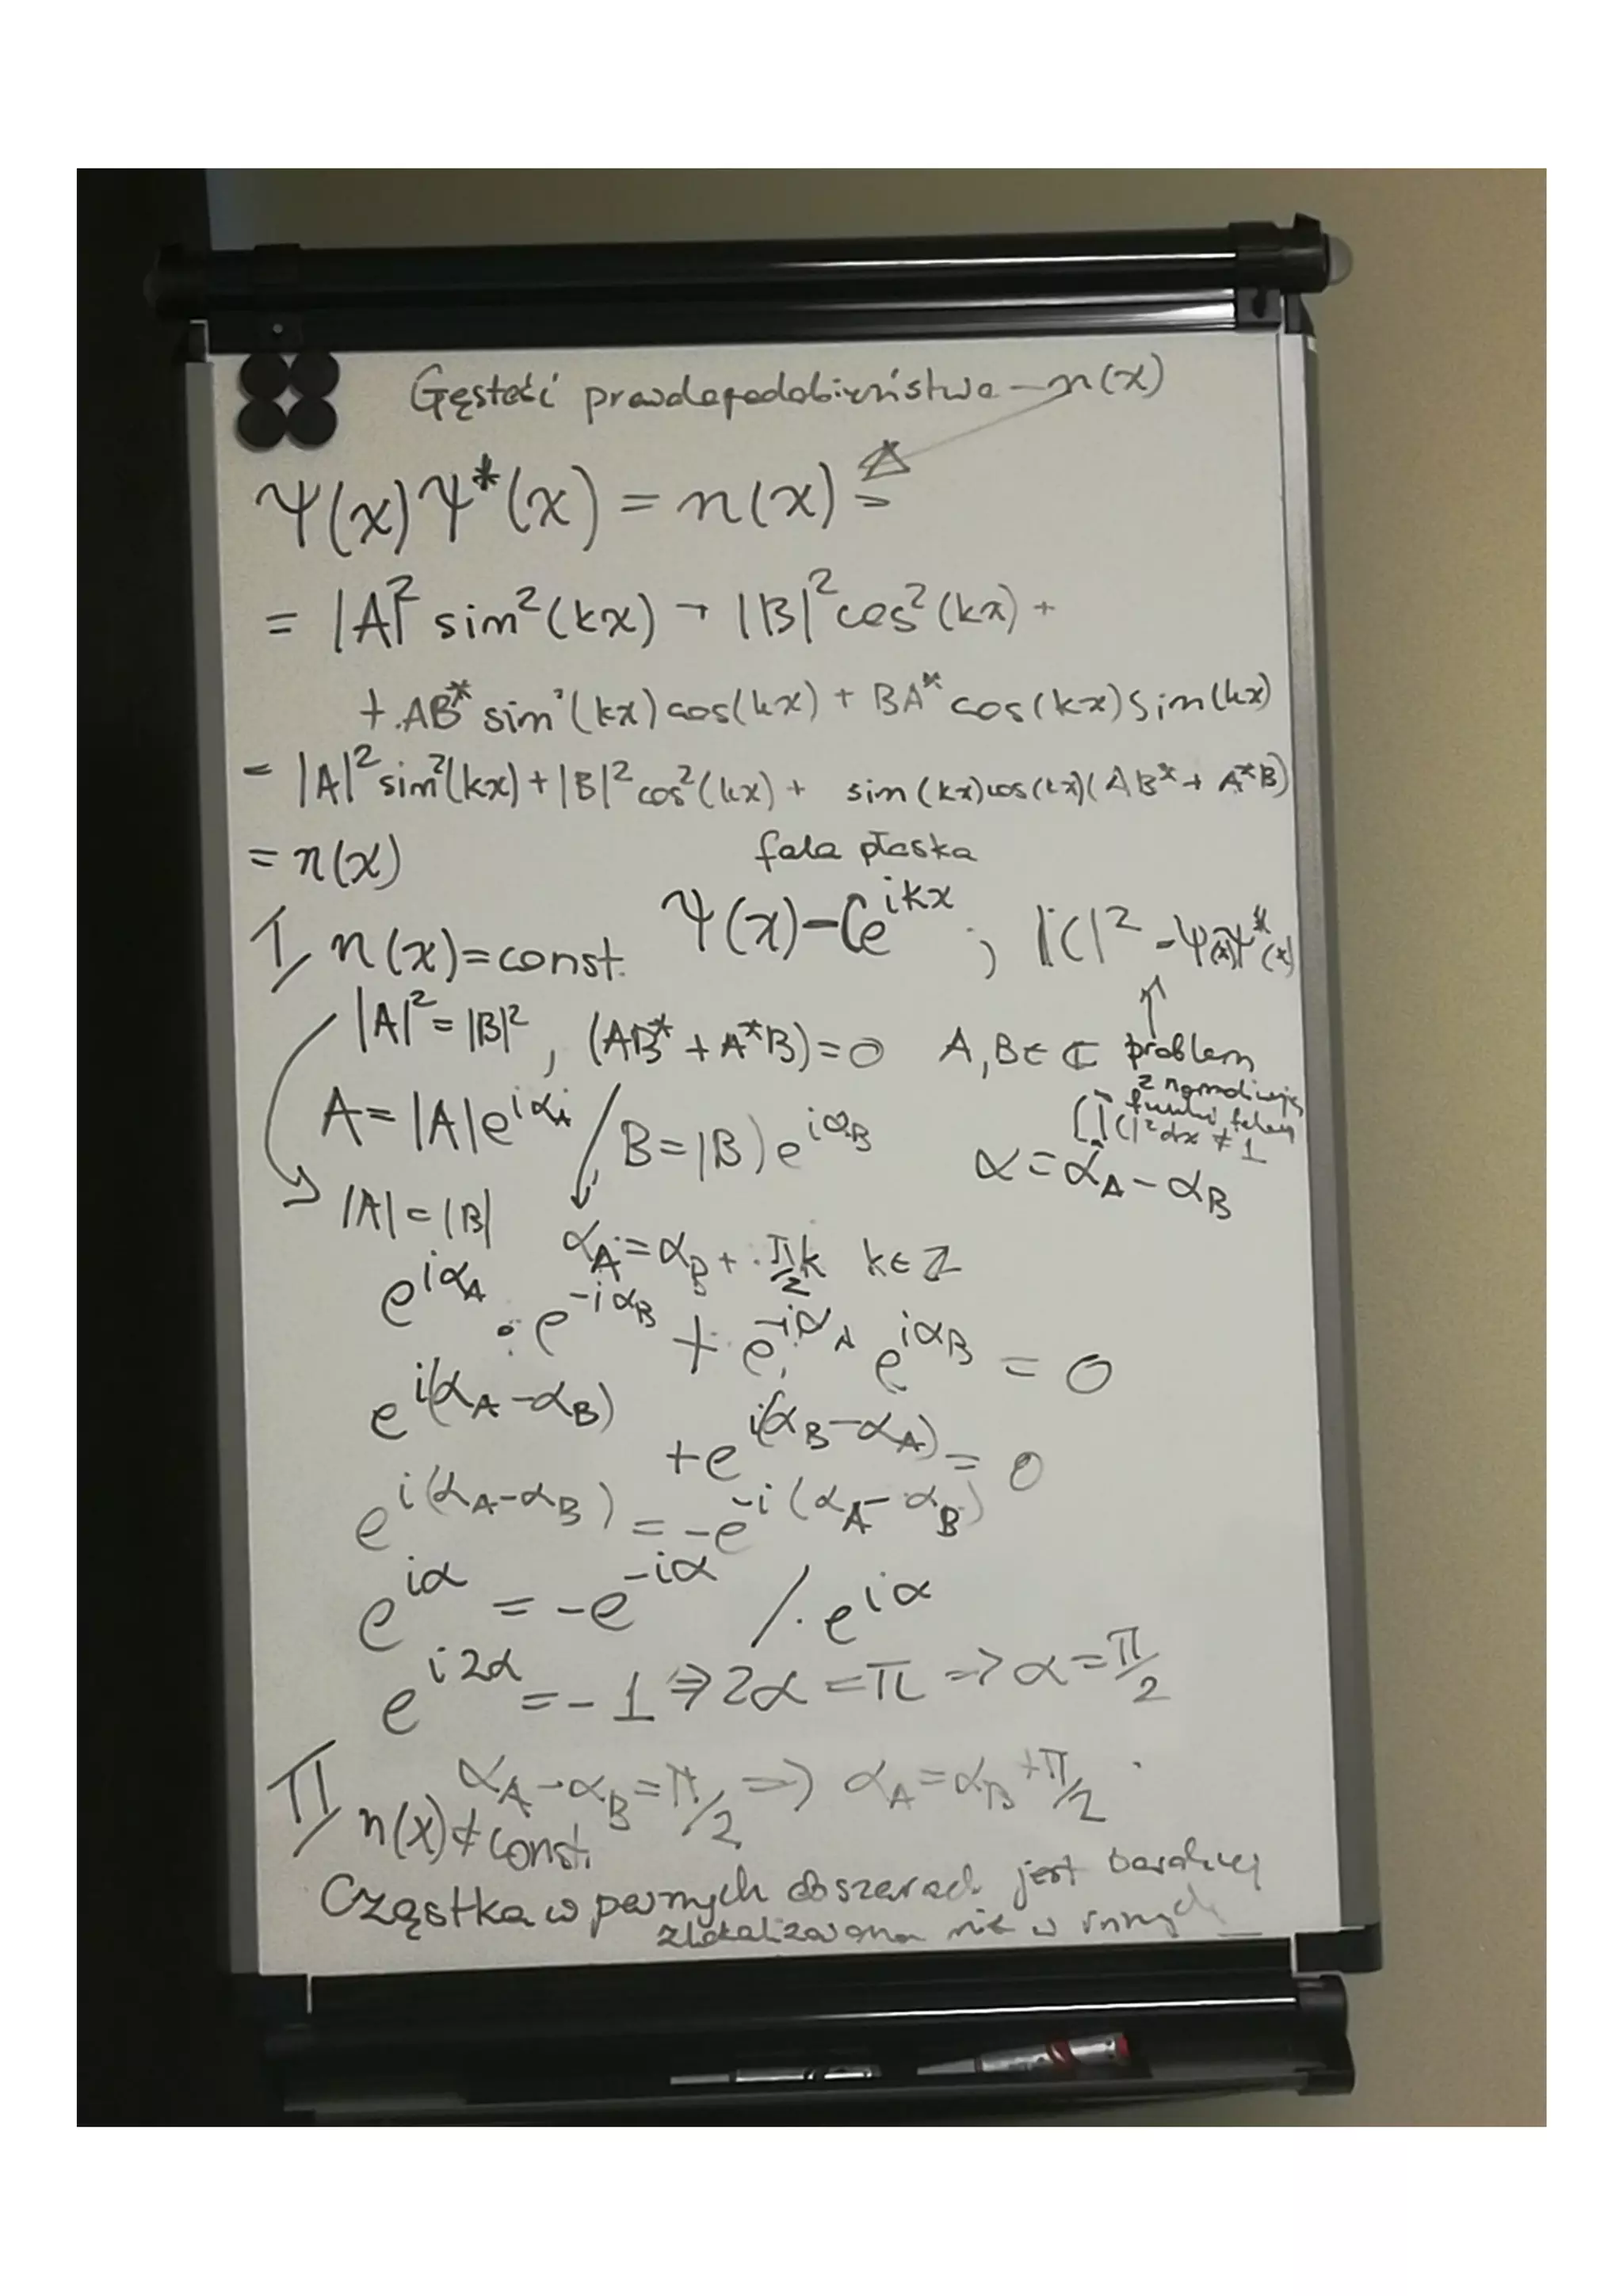 Gęstość prawdopodobieństwa – n(x)
Ψ(x)Ψ*(x) = n(x) =
= |A|² sin²(kx) + |B|² cos²(kx) +
+ AB* sin(kx) cos(kx) + BA* cos(kx) sin(kx)
= |A|² sin²(kx) + |B|² cos²(kx) + sin(kx) cos(kx) (AB* + A*B)
= n(x)
fala płaska
I n(x) = const. Ψ(x) = Ce^{ikx} ; |C|² = Ψ(x)Ψ*(x)
|A|² = |B|², (AB* + A*B) = 0 A, B ∈ ℂ problem
z normalizacją
funkcji falowej
∫|C|²dx ≠ 1
A = |A|e^{iα_A} B = |B|e^{iα_B} α = α_A − α_B
|A| = |B| α_A = α_B + π/2 k k ∈ ℤ
e^{iα_A} · e^{-iα_B} + e^{-iα_A} e^{iα_B} = 0
e^{i(α_A − α_B)} + e^{i(α_B − α_A)} = 0
e^{i(α_A − α_B)} = −e^{-i(α_A − α_B)}
e^{iα} = −e^{-iα} / · e^{iα}
e^{i2α} = −1 ⇒ 2α = π ⇒ α = π/2
α_A − α_B = π/2 ⇒ α_A = α_B + π/2
II n(x) ≠ const.
Cząstka w pewnych obszarach jest bardziej
zlokalizowana niż w innych